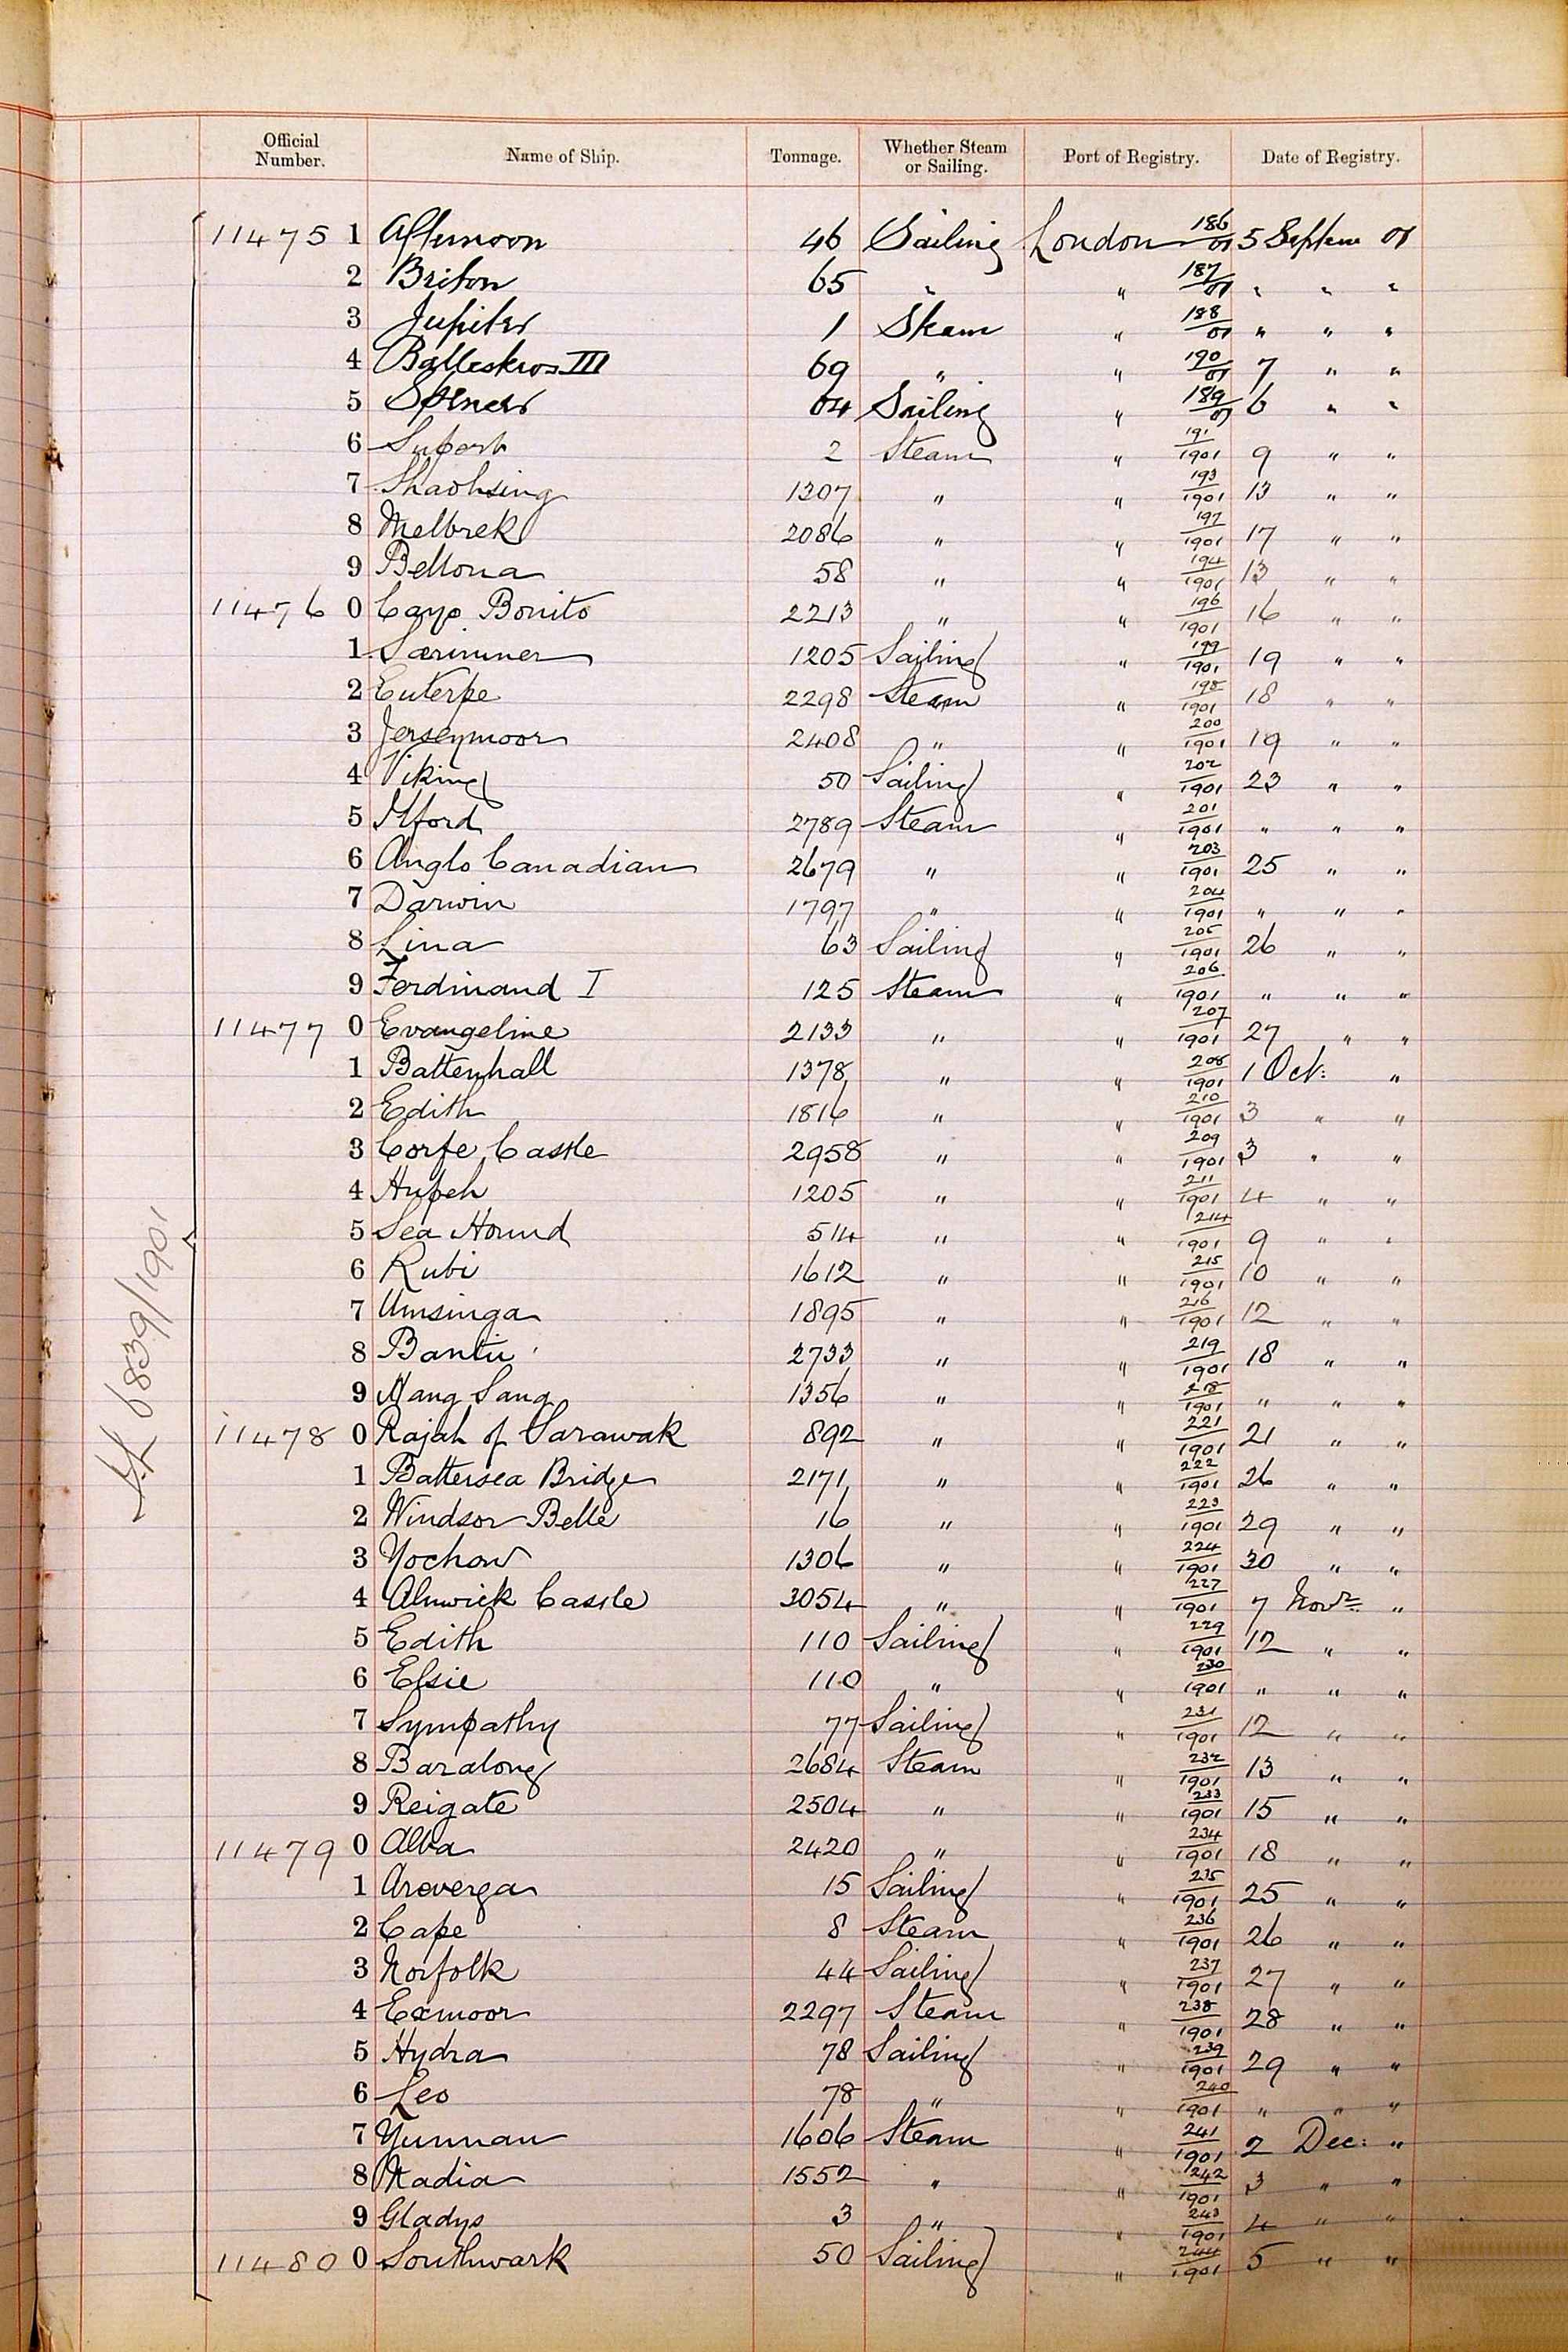 Official Number. Name of Ship. Tonnage. Whether Steam or Sailing. Port of Registry. Date of Registry.
11475 1 Afternoon 46 Sailing London 186/01 5 Septem 01
2 Briton 65 " " 187/01 " " "
3 Jupiter 1 Steam " 188/01 " " "
4 III 69 " " 190/01 7 " "
5 64 Sailing " 189/01 6 " "
6 Superb 2 Steam " 191/1901 9 " "
7 Shaohsing 1307 " " 193/1901 13 " "
8 Melbrek 2086 " " 197/1901 17 " "
9 Bellona 58 " " 194/1901 13 " "
11476 0 Cayo Bonito 2213 " " 196/1901 16 " "
1 Særimner 1205 Sailing " 199/1901 19 " "
2 Euterpe 2298 Steam " 198/1901 18 " "
3 Jerseymoor 2408 " " 200/1901 19 " "
4 Viking 50 Sailing " 202/1901 23 " "
5 Ilford 2789 Steam " 201/1901 " " "
6 Anglo Canadian 2679 " " 203/1901 25 " "
7 Darwin 1797 " " 204/1901 " " "
8 Lina 63 Sailing " 205/1901 26 " "
9 Ferdinand I 125 Steam " 206/1901 " " "
11477 0 Evangeline 2133 " " 207/1901 27 " "
1 Battenhall 1378 " " 208/1901 1 Oct: "
2 Edith 1816 " " 210/1901 3 " "
3 Corfe Castle 2958 " " 209/1901 3 " "
4 Hupeh 1205 " " 211/1901 4 " "
5 Sea Hound 514 " " 214/1901 9 " "
6 Rubi 1612 " " 215/1901 10 " "
7 Umsinga 1895 " " 216/1901 12 " "
8 Bantu 2733 " " 219/1901 18 " "
9 Nang Sang 1356 " " 218/1901 " " "
11478 0 Rajah of Sarawak 892 " " 221/1901 21 " "
1 Battersea Bridge 2171 " " 222/1901 26 " "
2 Windsor Belle 16 " " 223/1901 29 " "
3 Yochow 1306 " " 224/1901 30 " "
4 Alnwick Castle 3054 " " 227/1901 7 Novr "
5 Edith 110 Sailing " 229/1901 12 " "
6 Elsie 110 " " 230/1901 " " "
7 Sympathy 77 Sailing " 231/1901 12 " "
8 Baralong 2684 Steam " 232/1901 13 " "
9 Reigate 2504 " " 233/1901 15 " "
11479 0 Alba 2420 " " 234/1901 18 " "
1 Aroverga 15 Sailing " 235/1901 25 " "
2 Cape 8 Steam " 236/1901 26 " "
3 Norfolk 44 Sailing " 237/1901 27 " "
4 Exmoor 2297 Steam " 238/1901 28 " "
5 Hydra 78 Sailing " 239/1901 29 " "
6 Leo 78 " " 240/1901 " " "
7 Yunnan 1606 Steam " 241/1901 2 Dec: "
8 Nadia 1552 " " 242/1901 3 " "
9 Gladys 3 " " 243/1901 4 " "
11480 0 Southwark 50 Sailing " 244/1901 5 " "
6839/1901